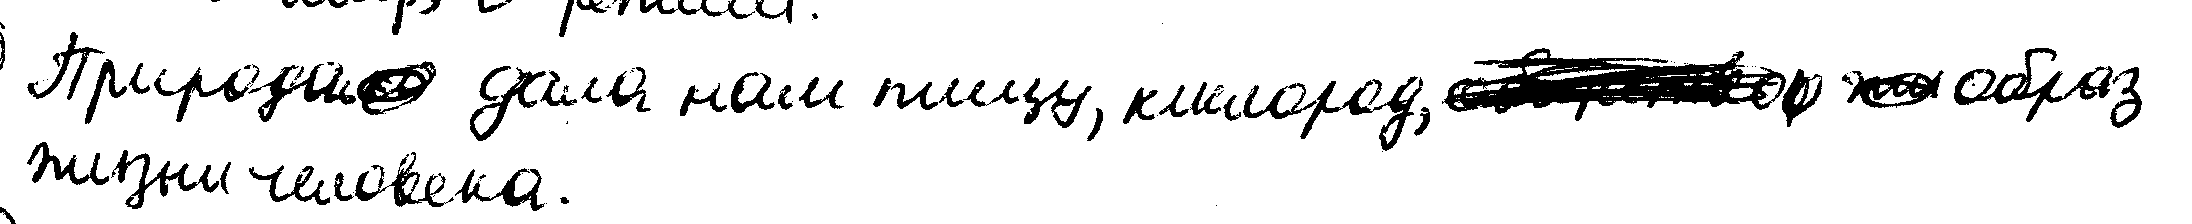 Природа дала нам пищу, кислород, образ
жизни человека.